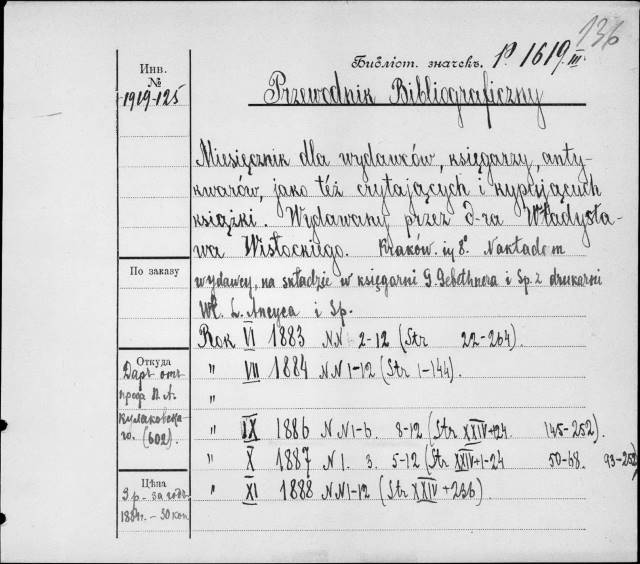 136
Библіот. значекъ. P 1619. III.
Инв.
№
1919-125
Przewodnik Bibliograficzny
Miesięcznik dla wydawców, księgarzy, anty-
kwarów, jako też czytających i kupujących
książki. Wydawany przez d-ra Władysła-
wa Wisłockiego. Kraków. in 8°. Nakładem
По заказу
wydawcy, na składzie w księgarni G. Gebethnera i Sp. z drukarni
Wł. L. Anczyca i Sp.
Rok VI 1883 NN 2-12 (Str 22-264).
Откуда
Даръ отъ
проф. П. А.
Кулаковска-
го. (602).
" VII 1884 NN 1-12 (Str 1-144).
"
" IX 1886 NN 1-6. 8-12 (Str XXIV+124. 145-252).
" X 1887 N 1. 3. 5-12 (Str XXIV+1-24 50-68. 93-252)
Цѣна
3 р. - за годъ
1884 г. - 50 коп
" XI 1888 NN 1-12 (Str XXIV + 236).